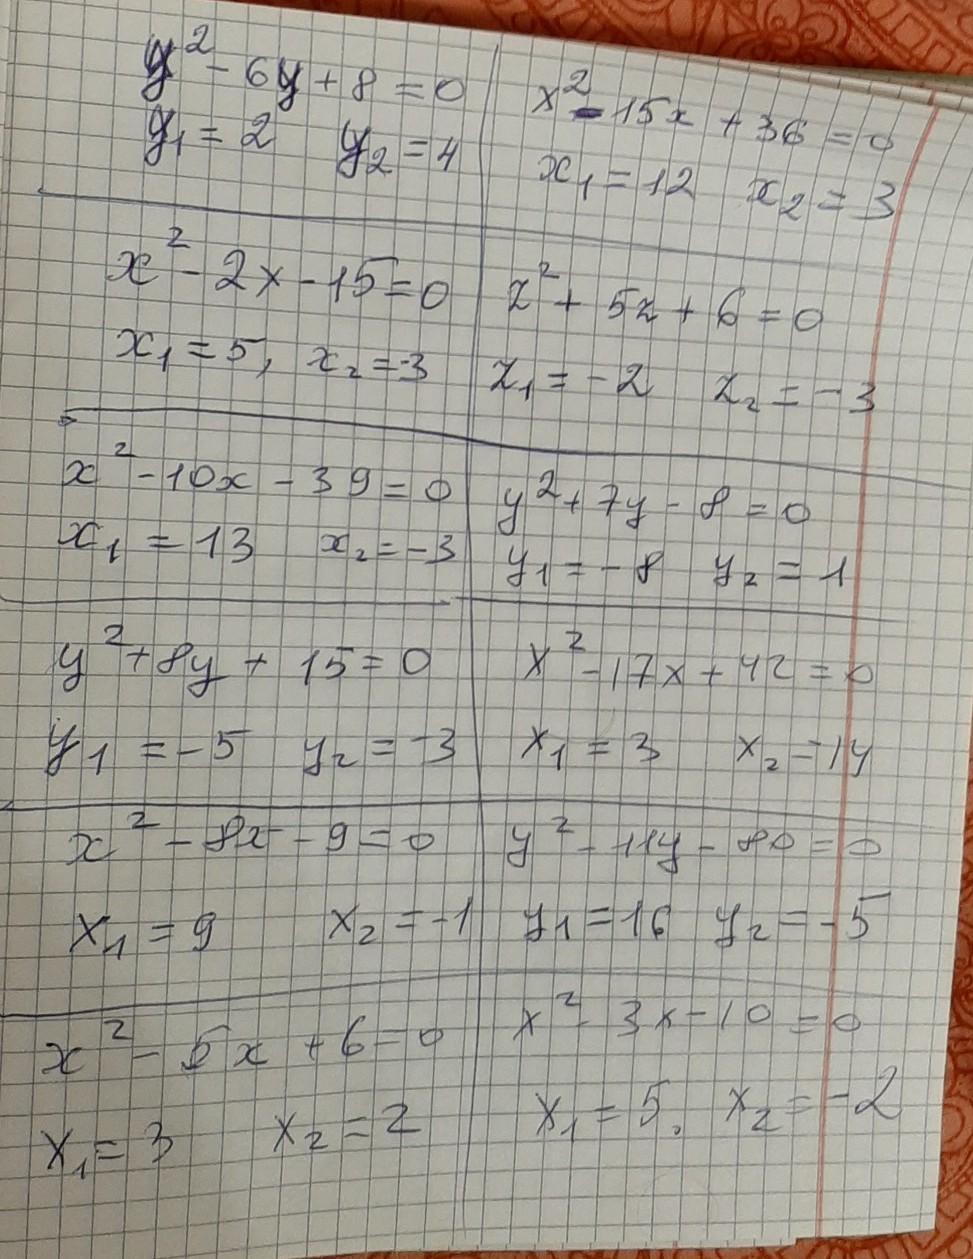 y² - 6y + 8 = 0
y₁ = 2 y₂ = 4
x² - 15x + 36 = 0
x₁ = 12 x₂ = 3
x² - 2x - 15 = 0
x₁ = 5, x₂ = -3
z² + 5z + 6 = 0
z₁ = -2 z₂ = -3
x² - 10x - 39 = 0
x₁ = 13 x₂ = -3
y² + 7y - 8 = 0
y₁ = -8 y₂ = 1
y² + 8y + 15 = 0
y₁ = -5 y₂ = -3
x² - 17x + 42 = 0
x₁ = 3 x₂ = 14
x² - 8x - 9 = 0
x₁ = 9 x₂ = -1
y² - 11y - 80 = 0
y₁ = 16 y₂ = -5
x² - 5x + 6 = 0
x₁ = 3 x₂ = 2
x² - 3x - 10 = 0
x₁ = 5, x₂ = -2